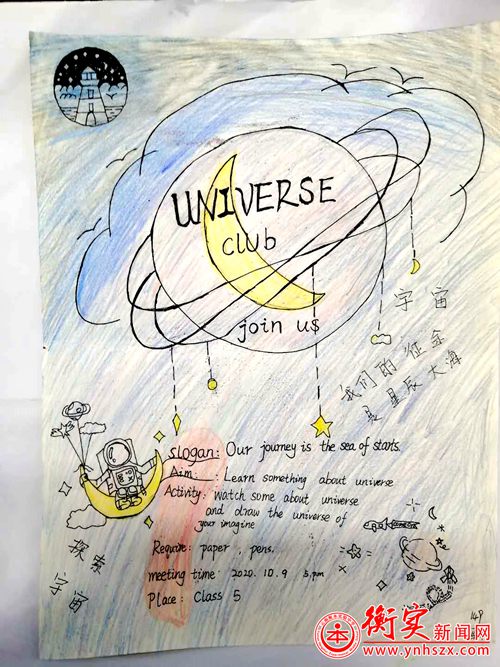 UNIVERSE
club
join us
宇宙
我们的征途
是星辰大海
slogan: Our journey is the sea of starts.
Aim: Learn something about universe
Activity: Watch some about universe
and draw the universe of
your imagine
Require: paper, pens.
meeting time: 2020.10.9 5pm
Place: Class 5
探索
宇宙
148
衡实新闻网
www.ynhszx.com